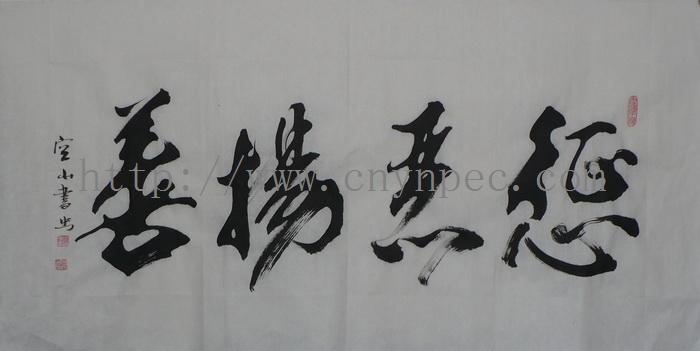 懲惡揚善
空山書出
http://www.cnynpec.com